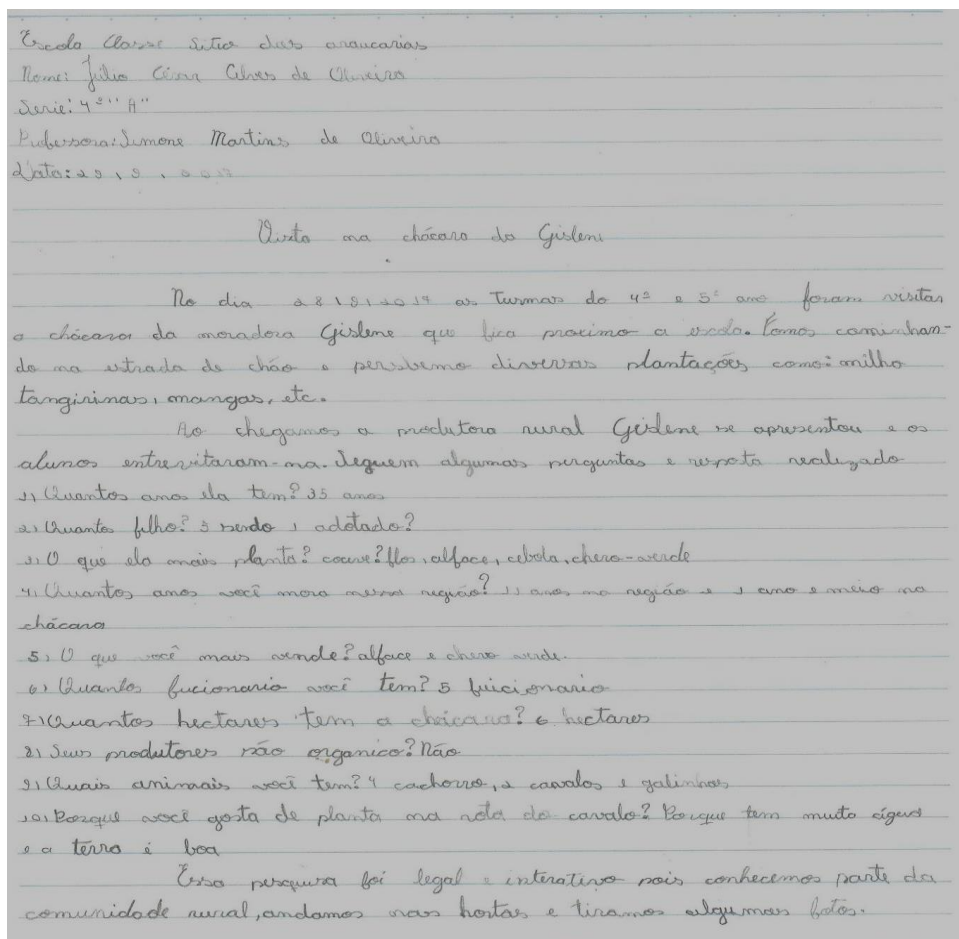 Escola Classe Sitio das araucarias
Nome: Júlio César Alves de Oliveira
Serie: 4º "A"
Professora: Simone Martins de Oliveira
Data: 29, 9,
Visita na chácara da Gislene
No dia 28, 9, 2017 as Turmas do 4º e 5º ano foram visitar
a chácara da moradora Gislene que fica proximo a escola. Fomos caminhan-
do na estrada de chão e persebemo diversas plantações como: milho
tangirinas, mangas, etc.
Ao chegamos a produtora rural Gislene se apresentou e os
alunos entrevitaram-ma. Seguem algumas perguntas e resposta realizado
1) Quantos anos ela tem? 35 anos
2) Quantos filho? 3 sendo 1 adotado?
3) O que ela mais planta? couve?flor, alface, cebola, chero-verde
4) Quantos anos você mora nessa região? 11 anos na região e 1 ano e meio na
chácara
5) O que você mais vende? alface e chero verde.
6) Quantos fucionario você tem? 5 fuicionario
7) Quantos hectares tem a chácara? 6 hectares
8) Seus produtores são organico? Não
9) Quais animais você tem? 4 cachorro, 2 cavalos e galinhas
10) Porque você gosta de planta na rota do cavalo? Porque tem muito água
e a terra é boa
Essa pesquisa foi legal e interativo pois conhecemos parte da
comunidade rural, andamos nas hortas e tiramos algumas fotos.